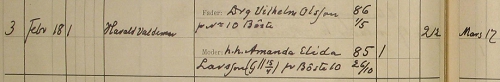 Fader: Drg Vilhelm Olsson 86
3 Febr 18 1 Harald Valdemar pr No 10 Båste 1/5 2/2 Mars 12
Moder: h.h. Amanda Elida 85 1
Larsson (G 15/7) pr Båste 10 26/10